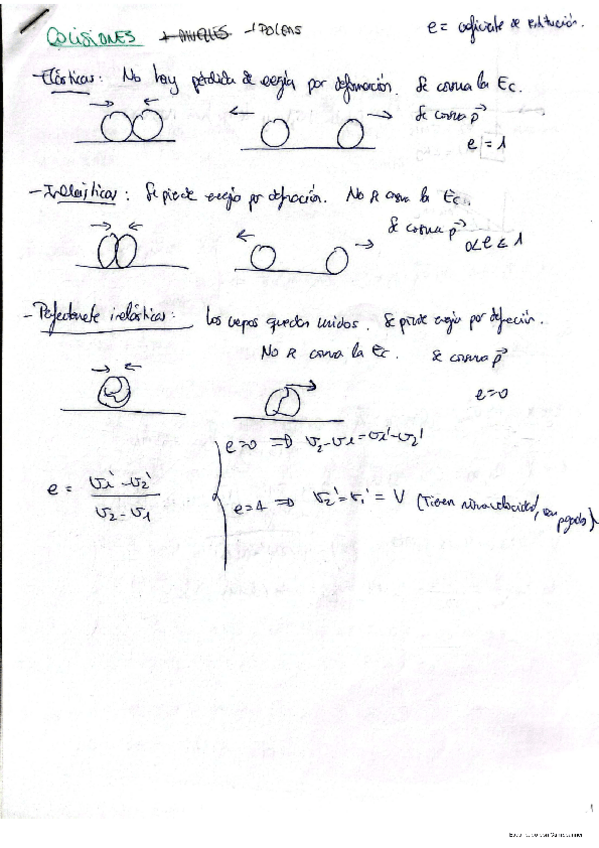 COLISIONES + MUELLES - POLEAS
e = coeficiente de restitución.
- Elásticas: No hay pérdida de energía por deformación. Se conserva la Ec.
Se conserva p⃗
e = 1
- Inelásticas: Se pierde energía por deformación. No se conserva la Ec.
Se conserva p⃗
0<e<1
- Perfectamente inelásticas: Los cuerpos quedan unidos. Se pierde energía por deformación.
No se conserva la Ec. Se conserva p⃗
e=0
e = v1' - v2' / v2 - v1
e=0 ⇒ v2 - v1 = v1' - v2'
e=1 ⇒ v2' = v1' = V (Tienen misma velocidad, van pegados)
1